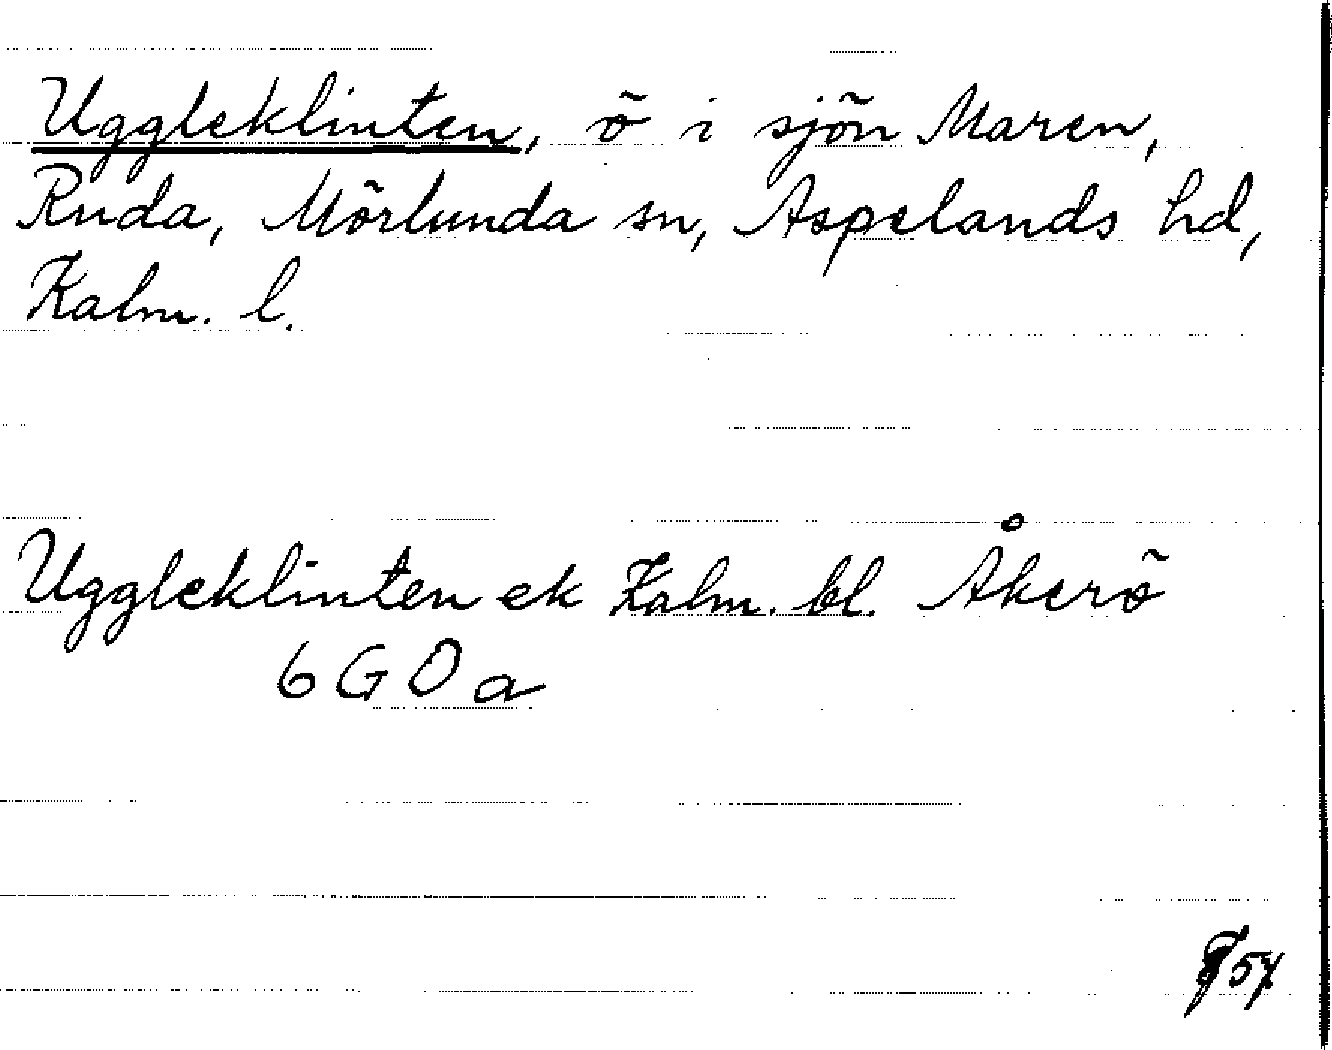 Uggleklinten, ö i sjön Maren,
Ruda, Mörlunda sn, Aspelands hd,
Kalm. l.
Uggleklinten ek Kalm. bl. Åkerö
6 G O a
57